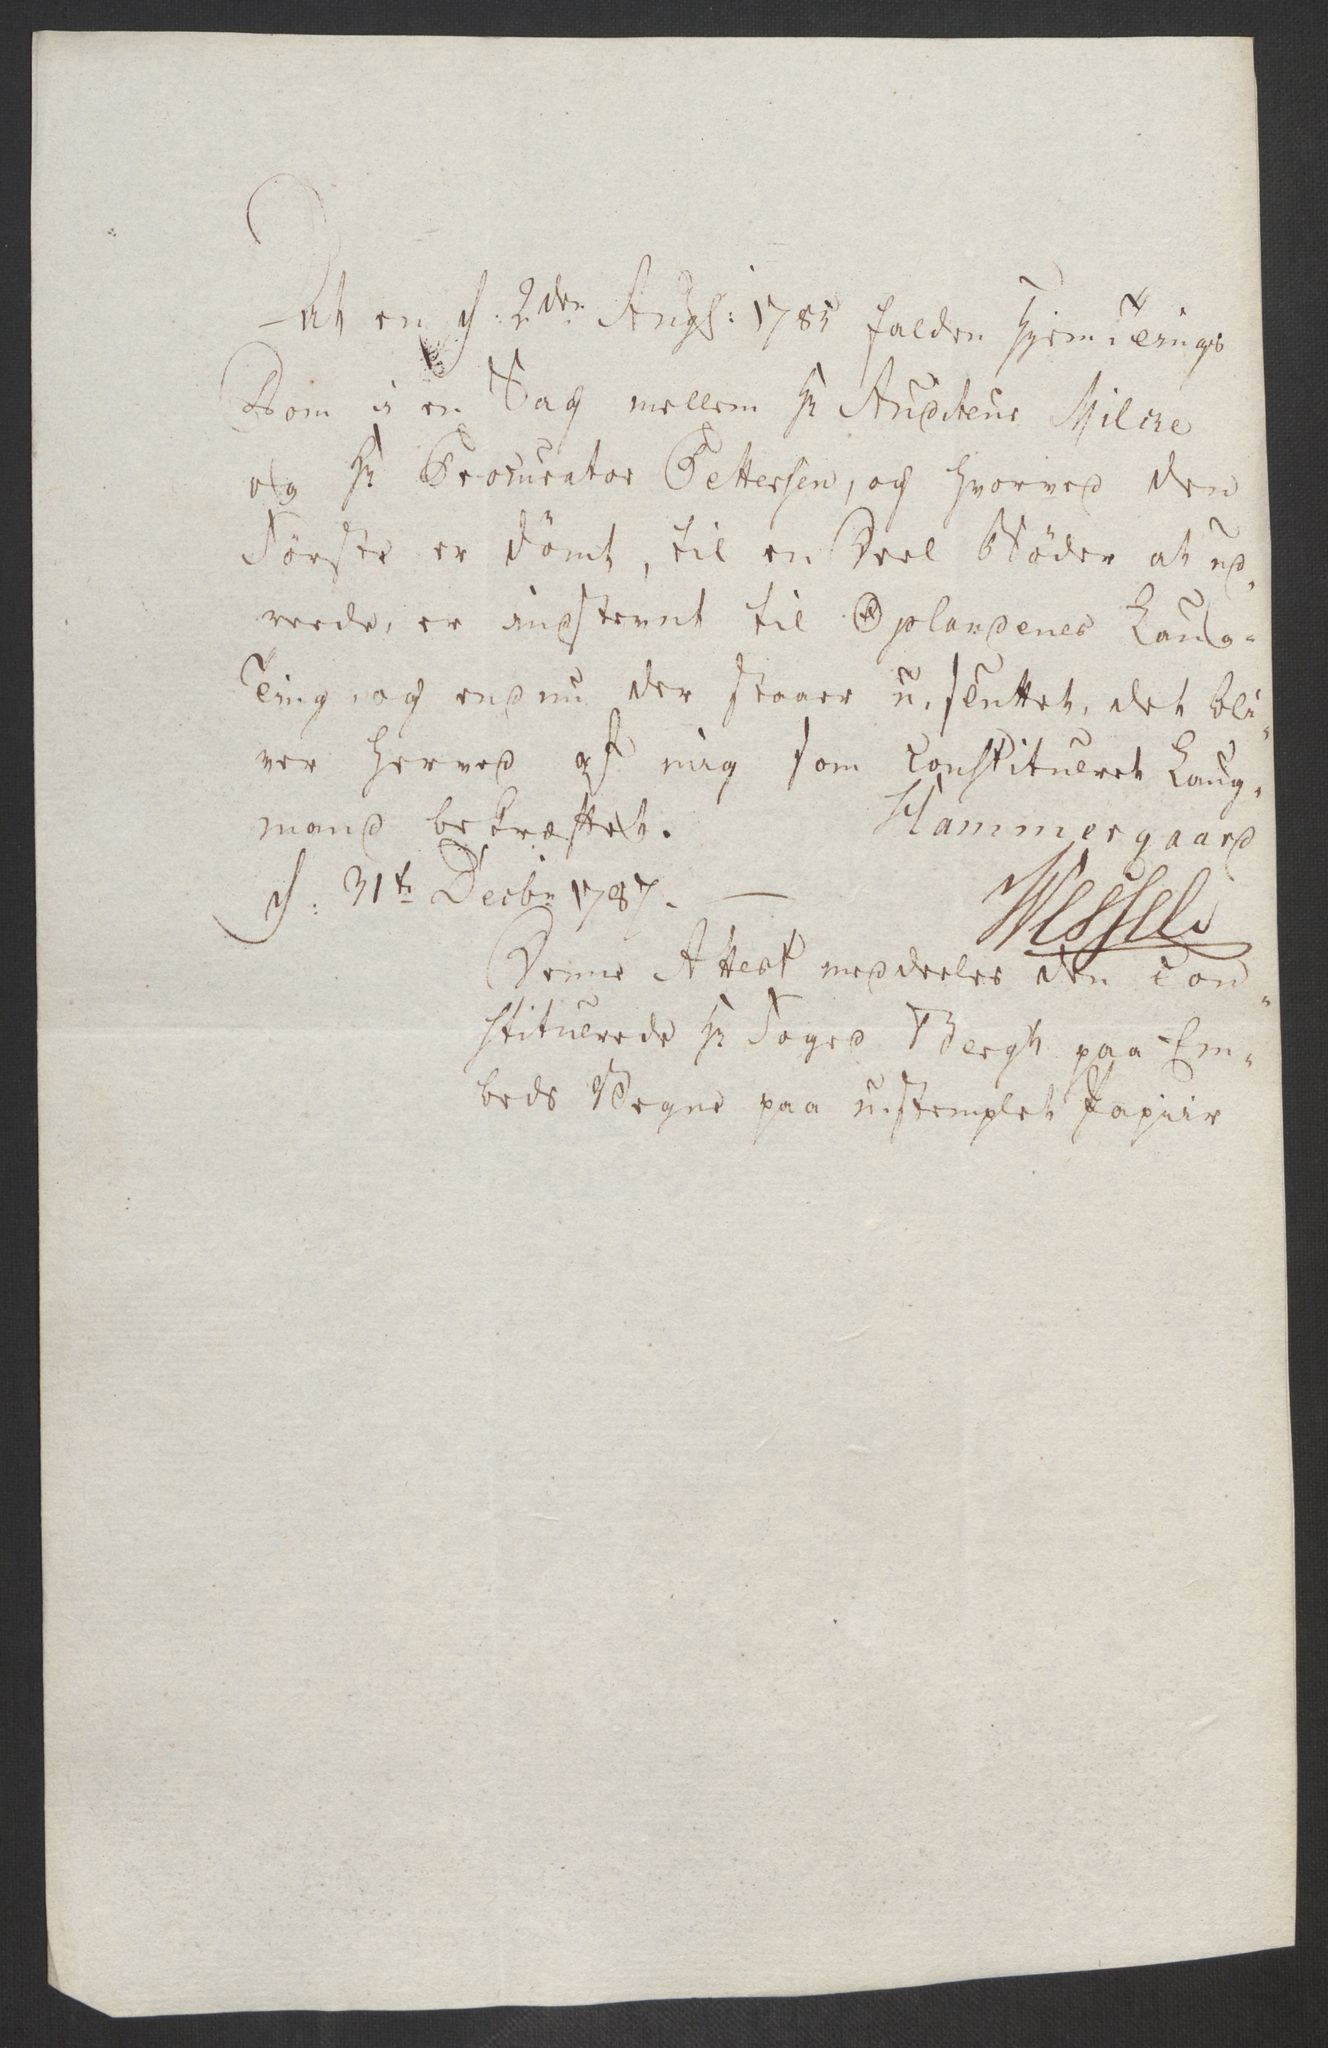 At en d: 2den Augs: 1785 falden Hjem-Tings
Dom i en Sag mellem Hr Auditeur Milche
og Hr Procurator Pettersen, og hvorved den
Første er dømt, til en Deel Bøder at ud-
reede, er indstevnt til Oplandenes Laug-
Ting, og endnu der staaer u-sluttet, det bli-
ver herved af mig som constitueret Laug-
mand bekræftet. Hammergaard
d: 31te Decbr 1787. —
Wessel
Denne Attest meddeeles den con-
stituerede Hr Foged Bergh paa Em-
beds Vegne paa u-stemplet Papiir